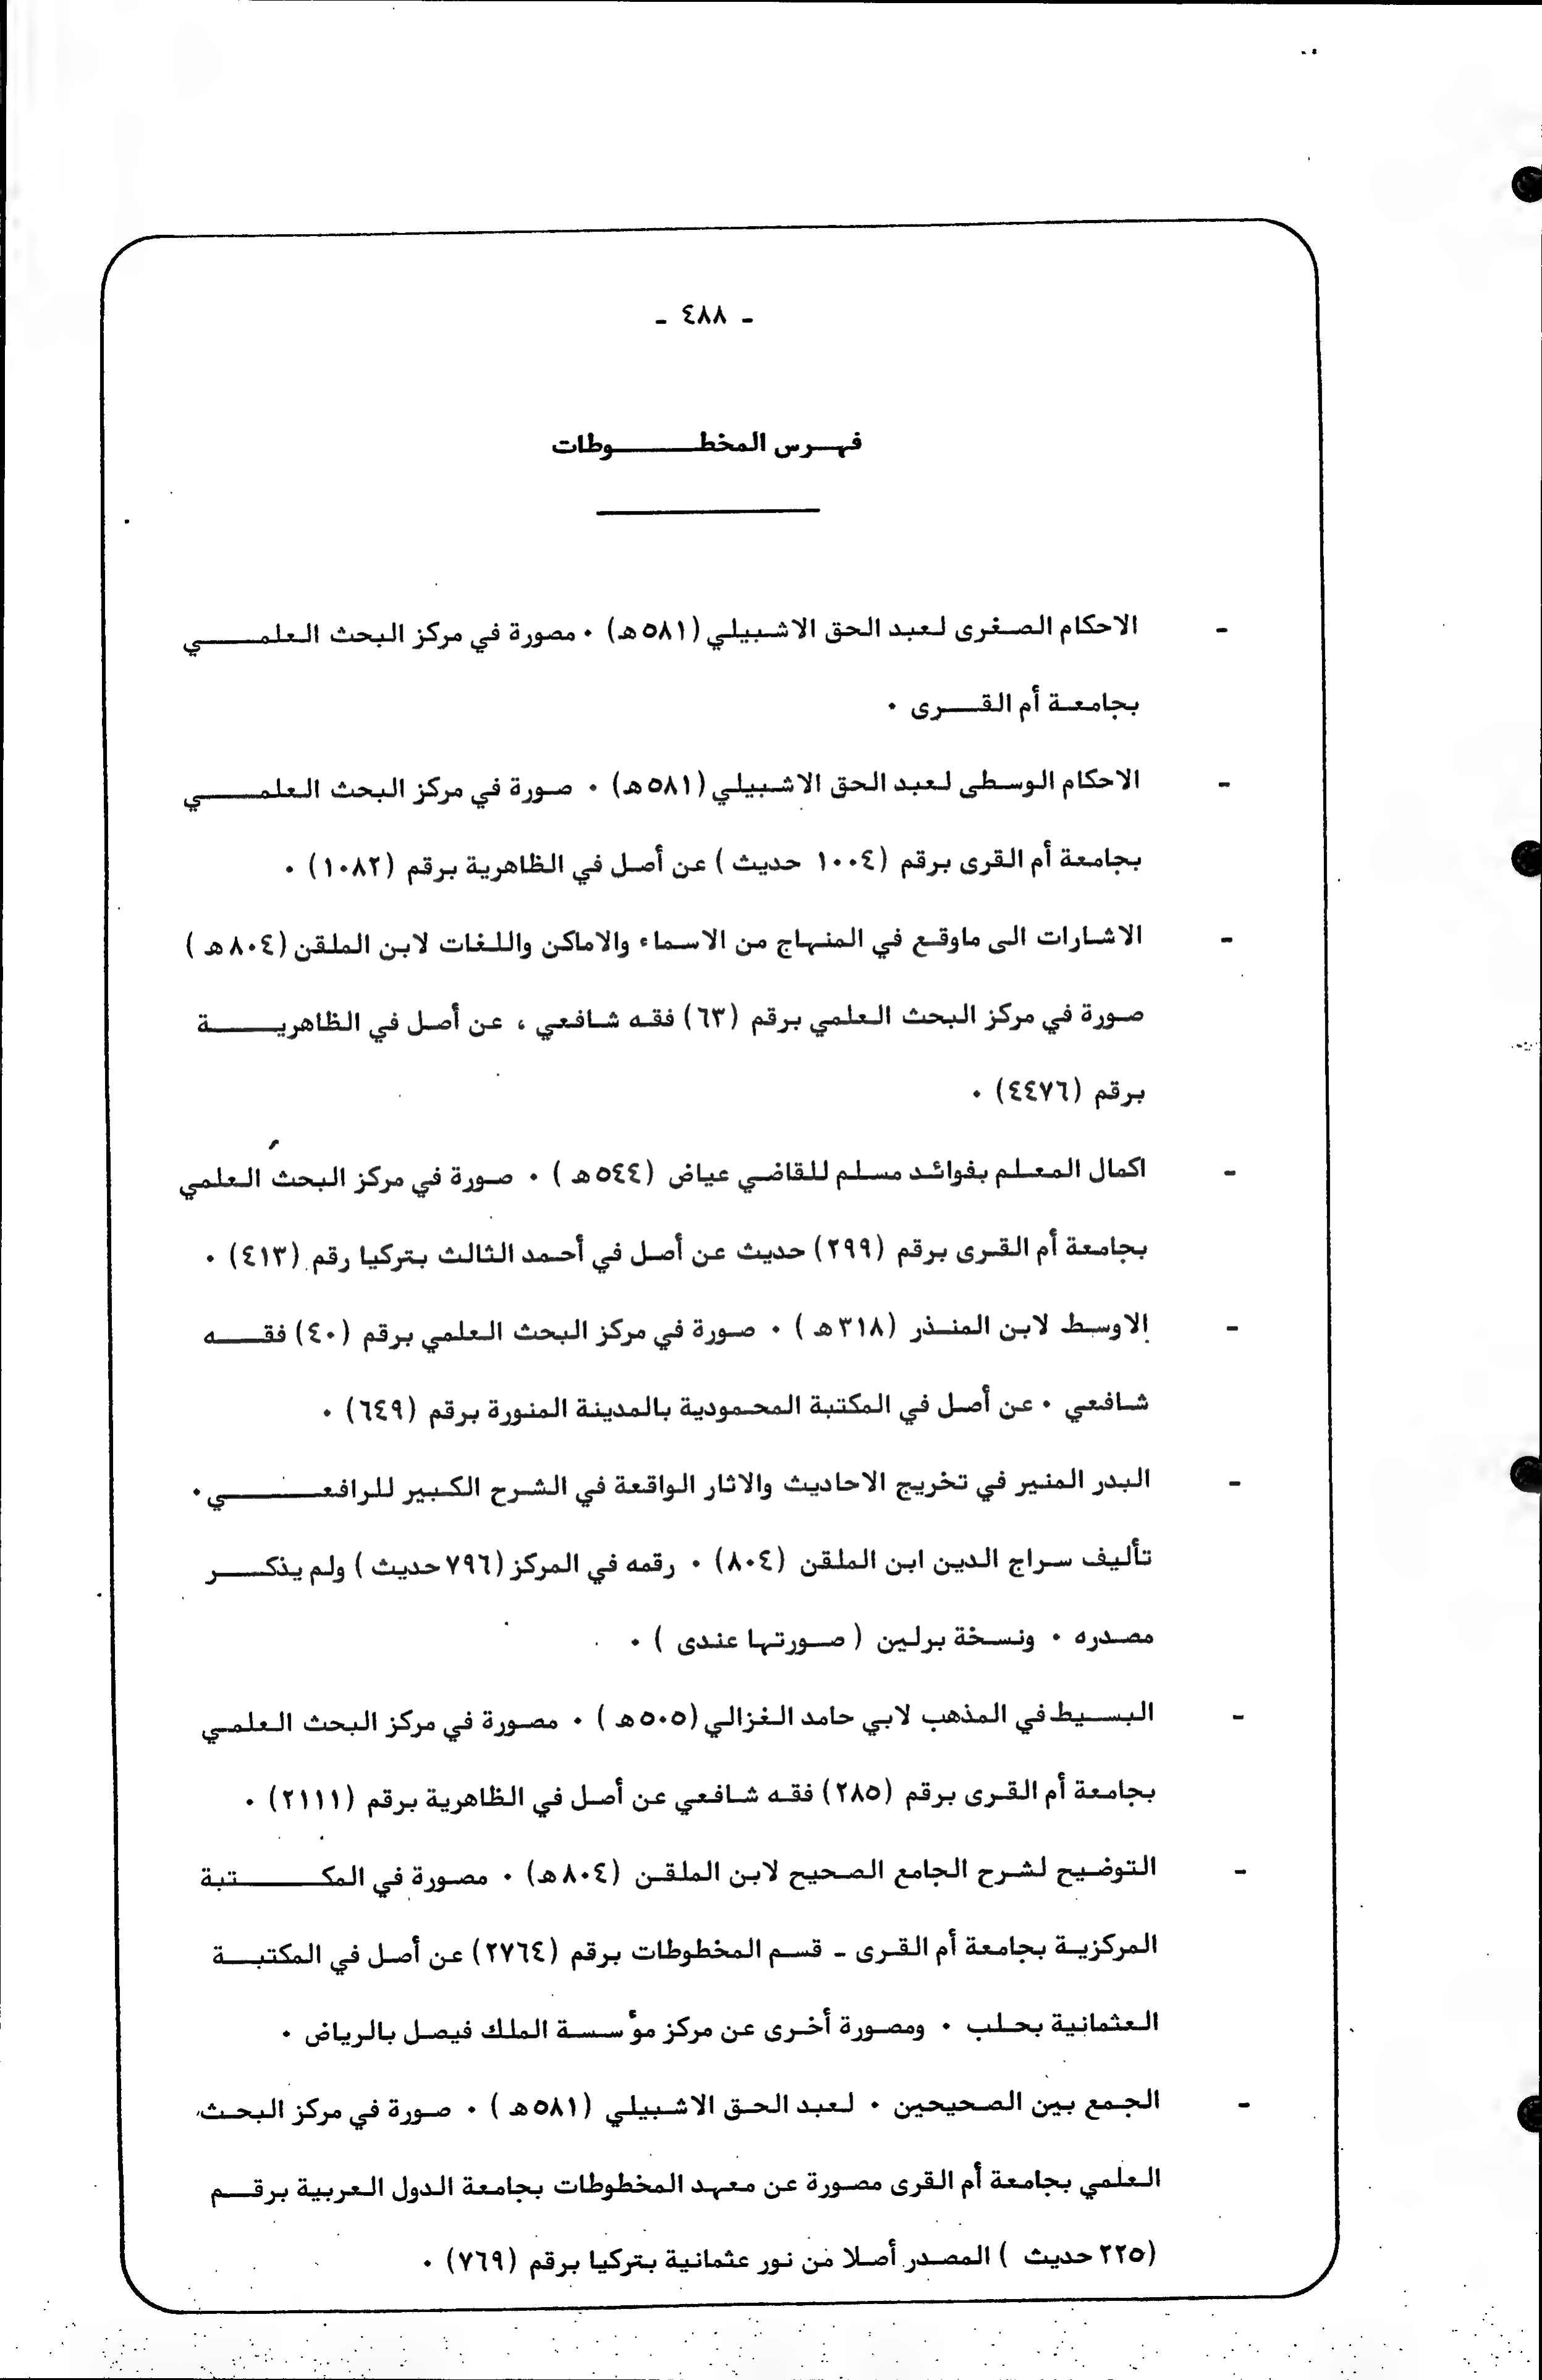 - ٤٨٨ -
فهرس المخطوطات
- الاحكام الصغرى لعبد الحق الاشبيلي (٥٨١هـ) ٠ مصورة في مركز البحث العلمي
بجامعة أم القرى ٠
- الاحكام الوسطى لعبد الحق الاشبيلي (٥٨١هـ) ٠ صورة في مركز البحث العلمي
بجامعة أم القرى برقم (١٠٠٤ حديث) عن أصل في الظاهرية برقم (١٠٨٢) ٠
- الاشارات الى ماوقع في المنهاج من الاسماء والاماكن واللغات لابن الملقن (٨٠٤هـ)
صورة في مركز البحث العلمي برقم (٦٣) فقه شافعي ، عن أصل في الظاهرية
برقم (٤٤٧٦) ٠
- اكمال المعلم بفوائد مسلم للقاضي عياض (٥٤٤هـ) ٠ صورة في مركز البحث العلمي
بجامعة أم القرى برقم (٢٩٩) حديث عن أصل في أحمد الثالث بتركيا رقم (٤١٣) ٠
- الاوسط لابن المنذر (٣١٨هـ) ٠ صورة في مركز البحث العلمي برقم (٤٠) فقه
شافعي ٠ عن أصل في المكتبة المحمودية بالمدينة المنورة برقم (٦٤٩) ٠
- البدر المنير في تخريج الاحاديث والاثار الواقعة في الشرح الكبير للرافعي ٠
تأليف سراج الدين ابن الملقن (٨٠٤) ٠ رقمه في المركز (٧٩٦ حديث) ولم يذكر
مصدره ٠ ونسخة برلين (صورتها عندى) ٠
- البسيط في المذهب لابي حامد الغزالي (٥٠٥هـ) ٠ مصورة في مركز البحث العلمي
بجامعة أم القرى برقم (٢٨٥) فقه شافعي عن أصل في الظاهرية برقم (٢١١١) ٠
- التوضيح لشرح الجامع الصحيح لابن الملقن (٨٠٤هـ) ٠ مصورة في المكتبة
المركزية بجامعة أم القرى - قسم المخطوطات برقم (٢٧٦٤) عن أصل في المكتبة
العثمانية بحلب ٠ ومصورة أخرى عن مركز مؤسسة الملك فيصل بالرياض ٠
- الجمع بين الصحيحين ٠ لعبد الحق الاشبيلي (٥٨١هـ) ٠ صورة في مركز البحث
العلمي بجامعة أم القرى مصورة عن معهد المخطوطات بجامعة الدول العربية برقم
(٢٢٥ حديث) المصدر أصلا من نور عثمانية بتركيا برقم (٧٦٩) ٠